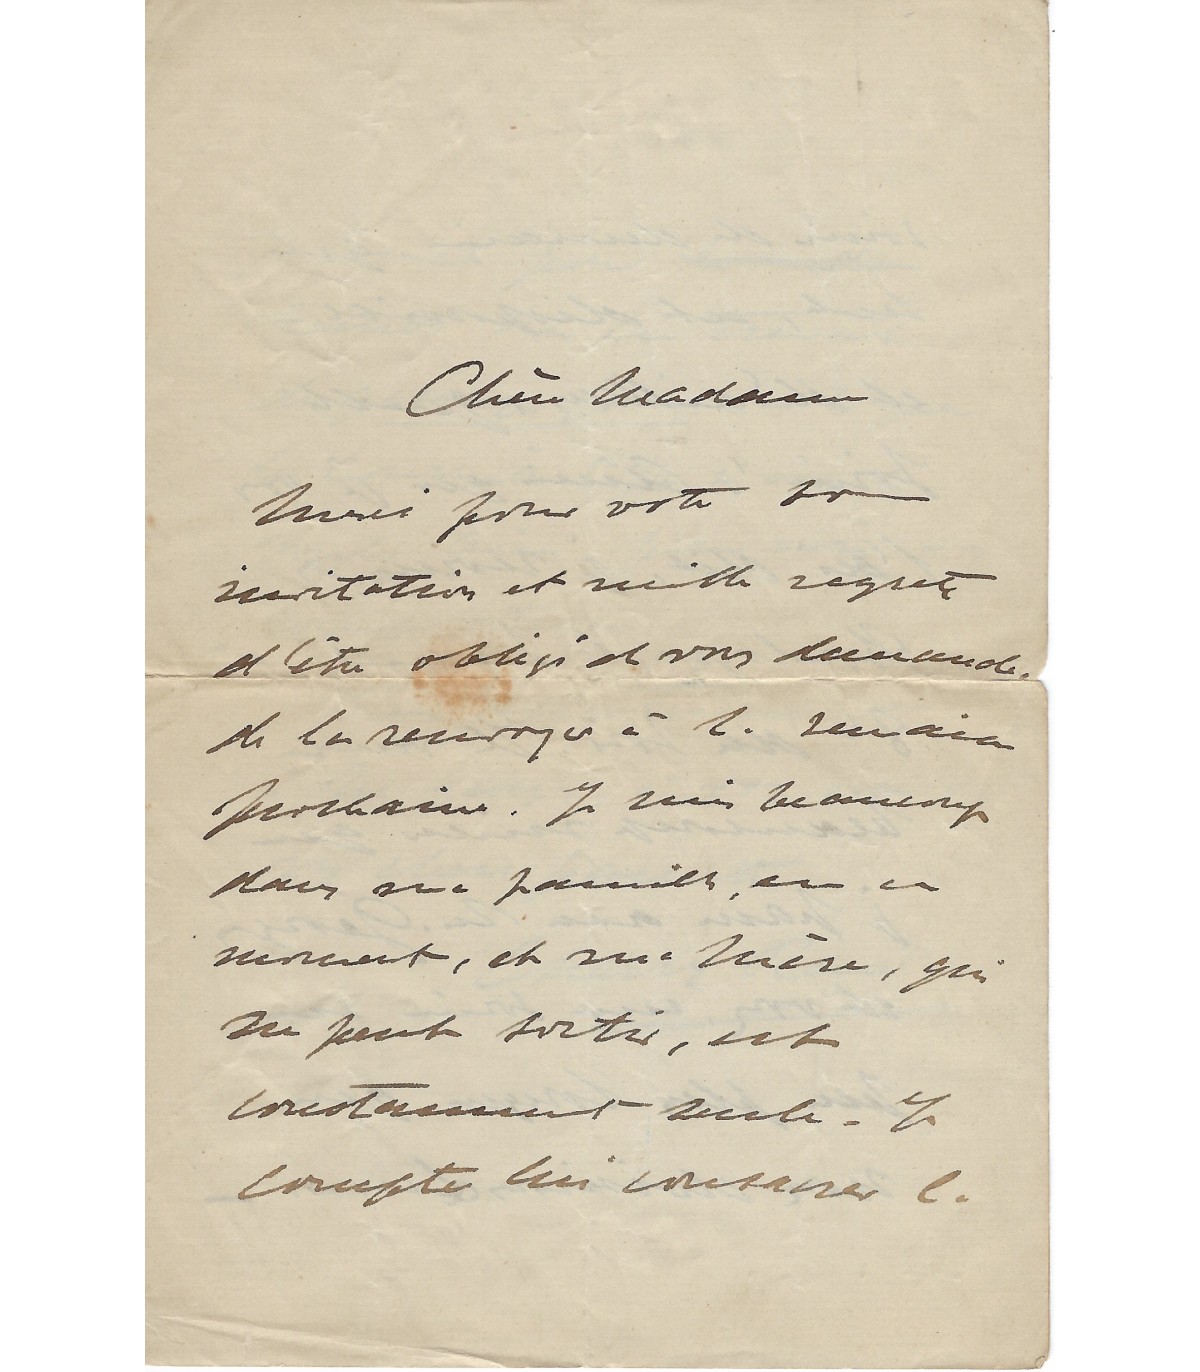 Chère Madame
Merci pour votre bonne
invitation et mille regrets
d'être obligé de vous demander
de la renvoyer à la semaine
prochaine. Je suis beaucoup
dans ma famille, en ce
moment, et ma Mère, qui
ne peut sortir, est
constamment seule. Je
compte lui consacrer la